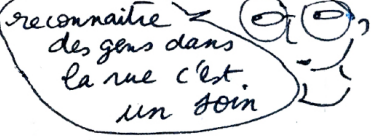 reconnaitre
des gens dans
la rue c'est
un soin